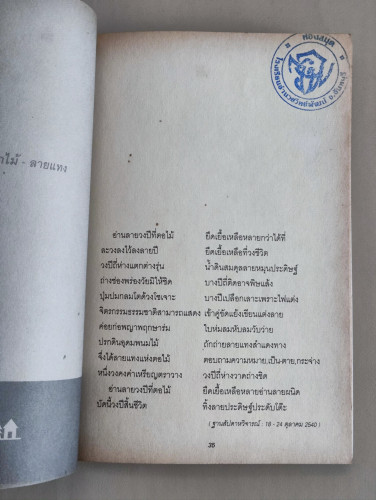 ห้องสมุด
าไม้ - ลายแทง
อ่านลายวงปีที่ตอไม้ ยืดเยื้อเหลือหลายกว่าได้ที่
ละวงลงไว้ลงลายปี ยืดเยื้อเหลือที่วงชีวิต
วงปีถี่ห่างแตกต่างรุ่น น้ำดินสมดุลลายหมุนประดิษฐ์
ถ่างช่องพร่องวัยมิให้ชิด บางปีถี่คิดอาจพิษแล้ง
ปุ่มปมกลมโตด้วงโซเจาะ บางปีเปลือกเลาะเพราะไฟแต่ง
จิตรกรรมธรรมชาติสามารถแสดง เข้าคู่ขัดแย้งเขียนแต่งลาย
ค่อยก่อพญาพฤกษาร่ม ใบห่มลมหับลมวับวาย
ปรกดินอุดมพนมไม้ ถักถ่ายลายแทงสำแดงทาง
จึงได้ลายแทงแห่งตอไม้ ตอบถามความหมาย,เป็น-ตาย,กระจ่าง
หนึ่งวงคงค่าเหรียญตราวาง วงปีถี่ห่างวาดถ่างชิด
อ่านลายวงปีที่ตอไม้ ยืดเยื้อเหลือหลายอ่านลายผนิด
บัดนี้วงปีสิ้นชีวิต ทิ้งลายประดิษฐ์ประดับโต๊ะ
( ฐานสัปดาห์วิจารณ์ : 18 - 24 ตุลาคม 2540 )
35